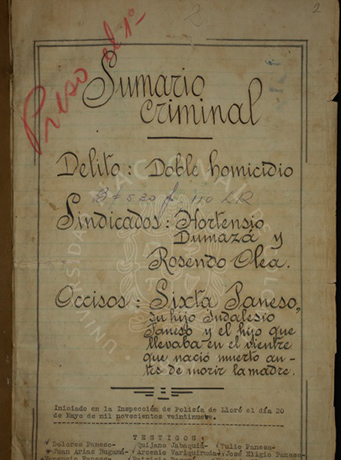 2
2
Preso el 1º
Sumario
Criminal
Delito: Doble homicidio
Sindicados: Hortensio
Dumaza y
Rosendo Olea.
Occisos: Sixta Paneso,
su hijo Indalesio
Paneso y el hijo que
llevaba en el vientre
que nació muerto an-
tes de morir la madre.
Iniciado en la Inspección de Policía de Lloró el día 20
de Mayo de mil novecientos veintinueve.
TESTIGOS:
Dolores Paneso
Quijano Jabaquió
Tulio Paneso
Juan Arias Dugumá
Arcenio Variquiruda
José Eligio Paneso
UNIVERSIDAD NACIONAL